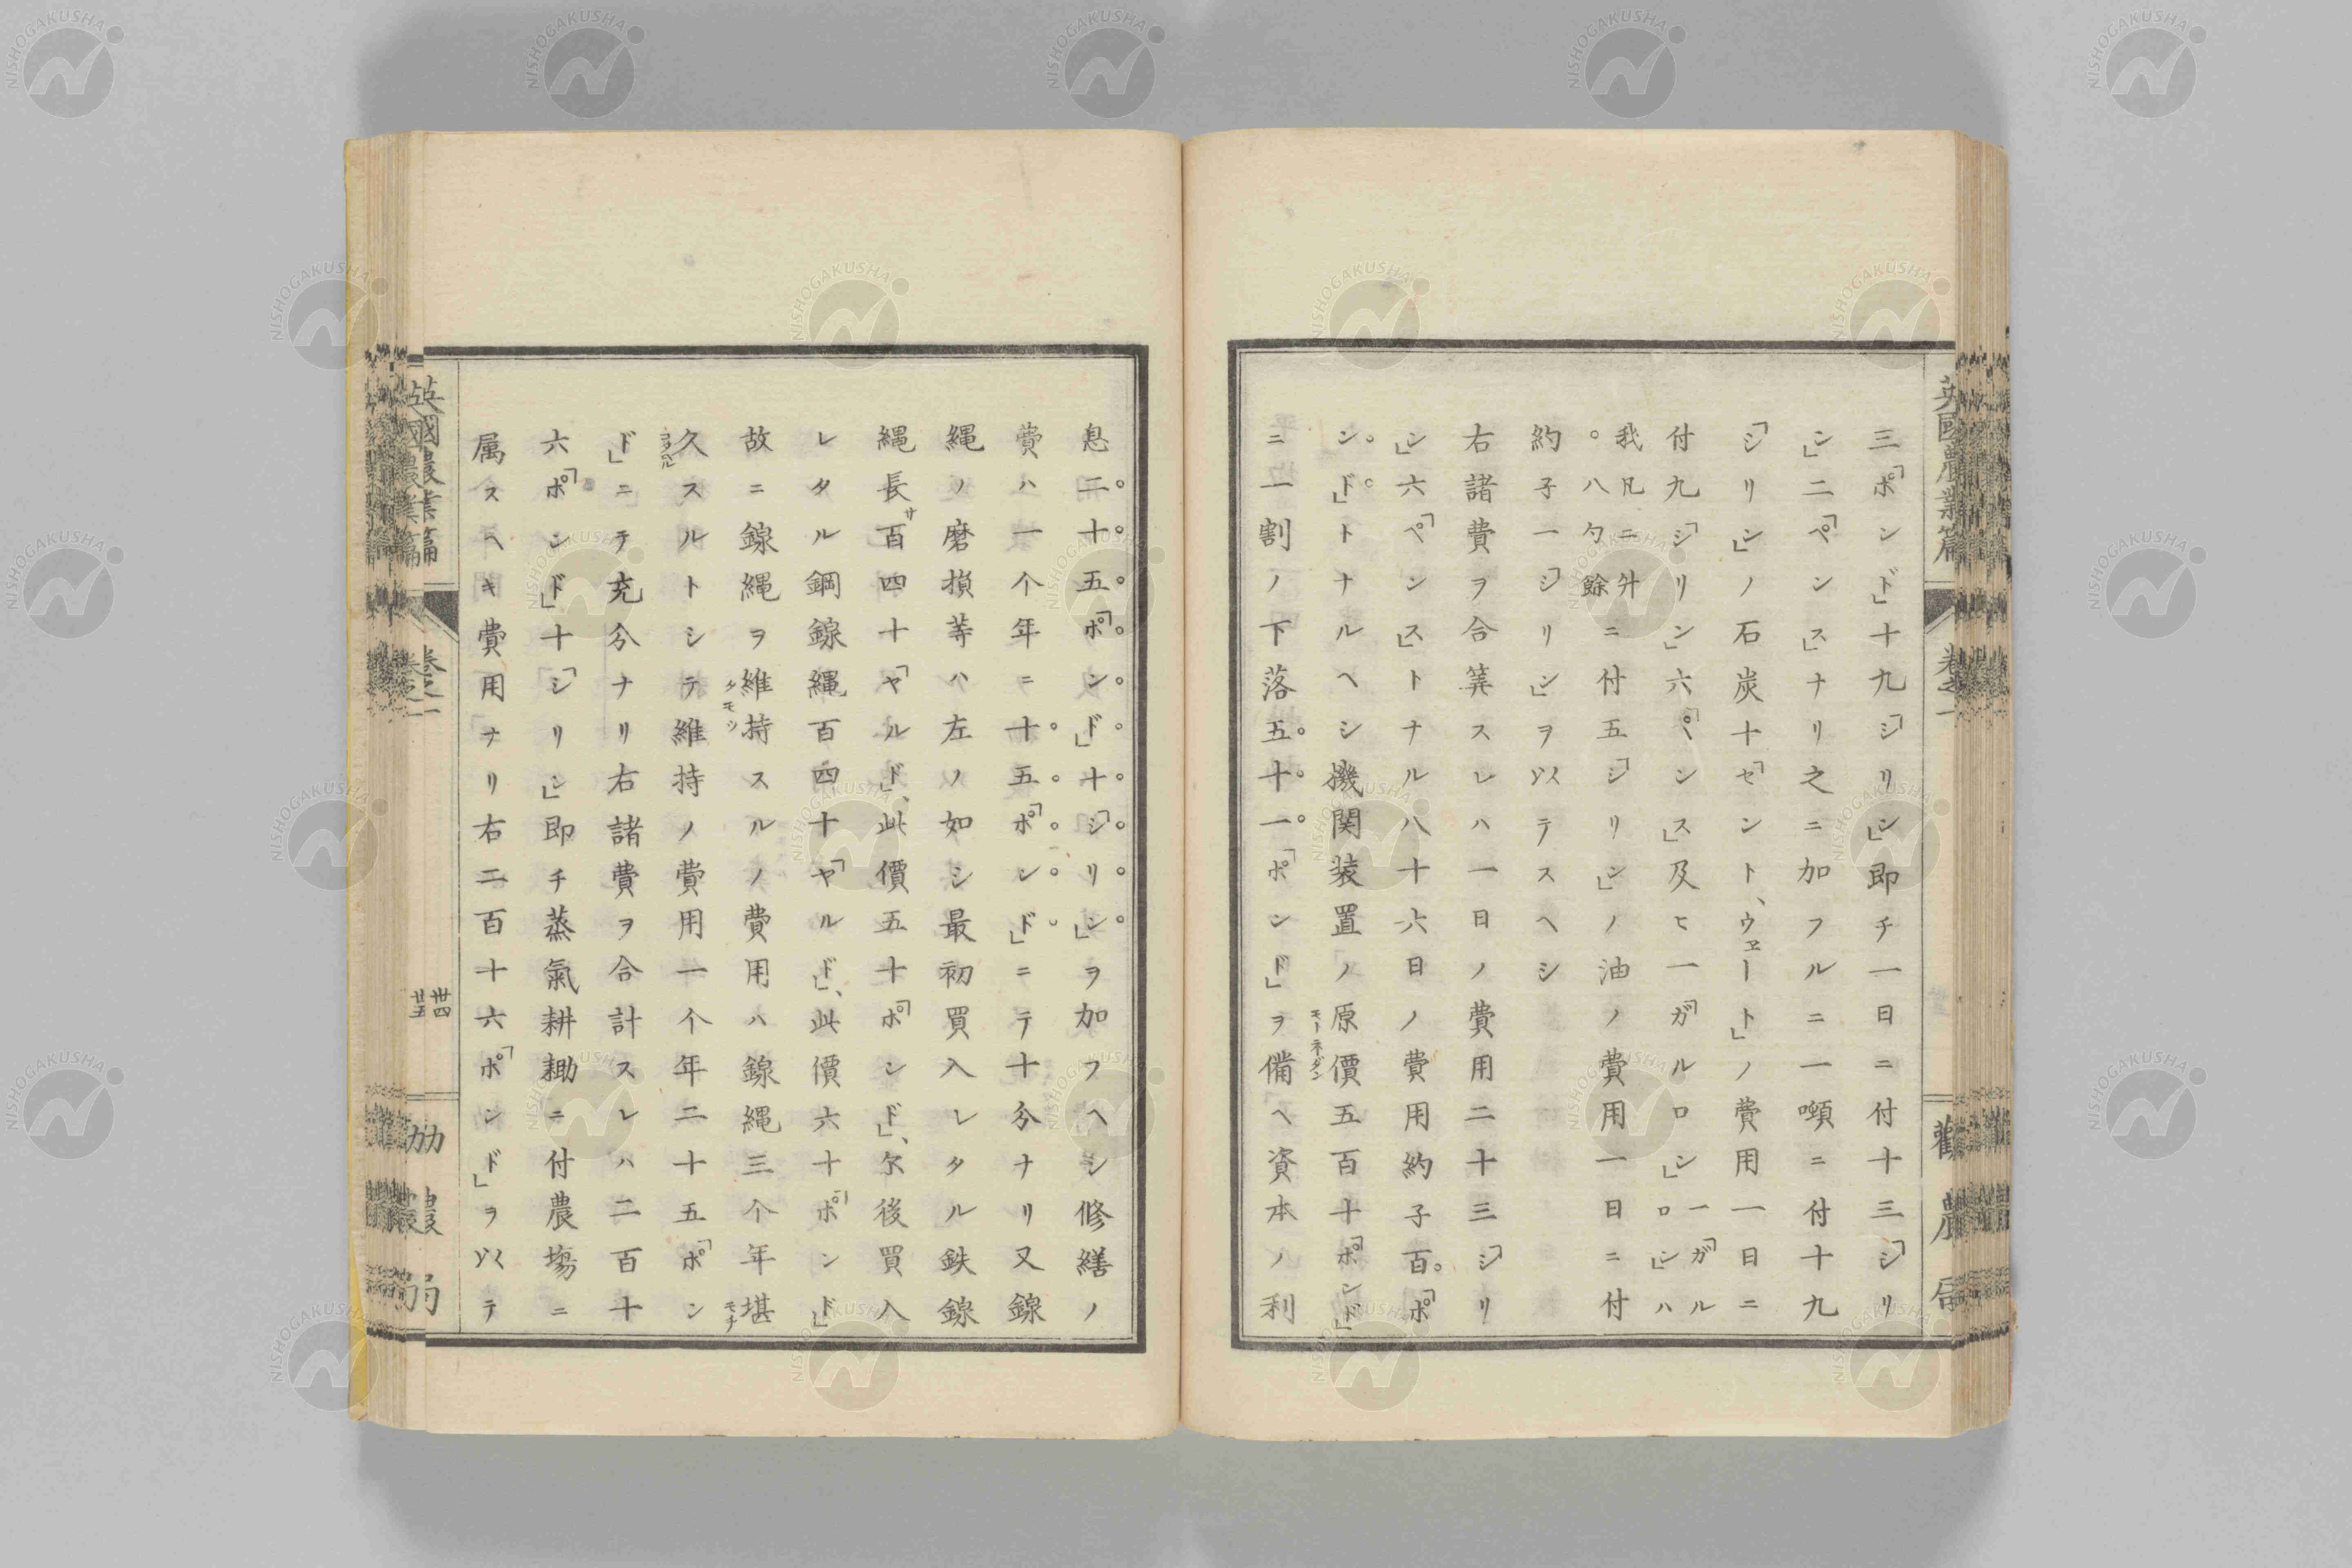 三「ポンド」十九「シリン」即チ一日ニ付十三「シリ
ン」二「ペンス」ナリ之ニ加フルニ一噸ニ付十九
「シリン」ノ石炭十「セント、ウヱート」ノ費用一日ニ
付九「シリン」六「ペンス」及ヒ一「ガルロン」一「ガルロン」ハ
我凡ニ升。八勺餘ニ付五「シリン」ノ油ノ費用一日ニ付
約子一「シリン」ヲ以テスヘシ
右諸費ヲ合筭スレハ一日ノ費用二十三「シリ
ン」六「ペンス」トナル八十六日ノ費用約子百「ポ
ンド」トナルヘシ機関装置ノ原價モーネダン五百十「ポンド」
ニ一割ノ下落五十一「ポンド」ヲ備ヘ資本ノ利
息二十五「ポンド」十「シリン」ヲ加フヘシ修繕ノ
費ハ一个年ニ十五「ポンド」ニテ十分ナリ又線
縄ノ磨損等ハ左ノ如シ最初買入レタル鉄線
縄長サ百四十「ヤルド」、此價五十「ポンド」、尓後買入
レタル鋼線縄百四十「ヤルド」、此價六十「ポンド」
故ニ線縄ヲ維持タモツスルノ費用ハ線縄三个年堪モチ
久コタヘルスルトシテ維持ノ費用一个年二十五「ポン
ド」ニテ充分ナリ右諸費ヲ合計スレハ二百十
六「ポンド」十「シリン」即チ蒸氣耕耡ニ付農塲ニ
属スヘキ費用ナリ右二百十六「ポンド」ヲ以テ
英國農業篇
卷之一
丗四
英國農業篇
卷之一
勸農局
NISHOGAKUSHA